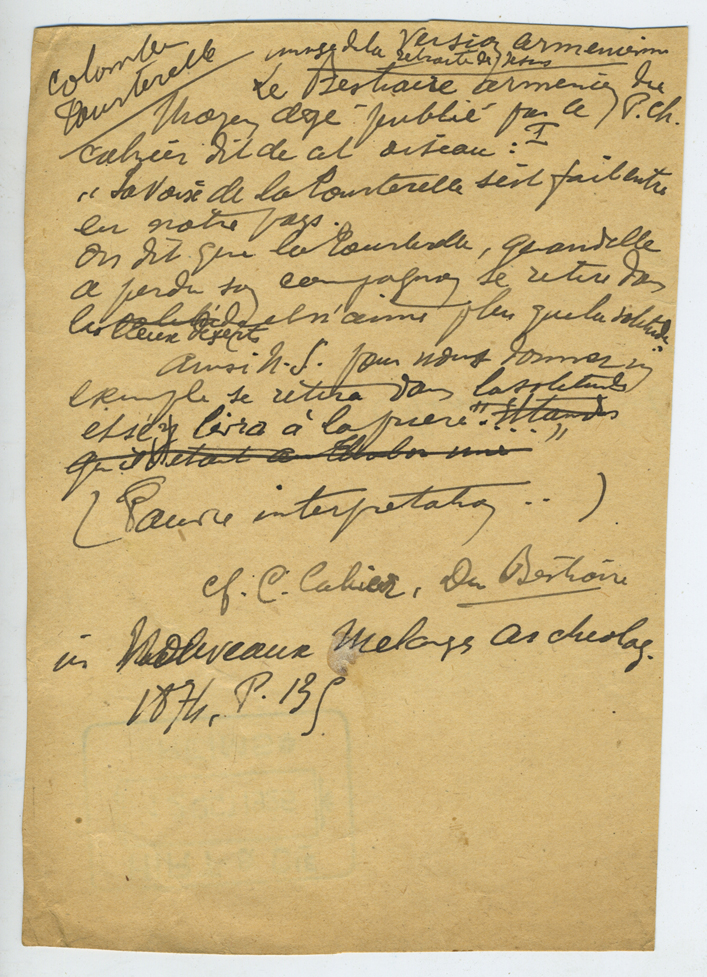 Colombe
Tourterelle
image de la Version armenienne
retraite de Jesus
Le Bestiaire armenien du
Moyen age publié par le P. Ch.
Cahier dit de cet oiseau : I
" La Voix de la Tourterelle s'est fait entre
en notre pays.
On dit que la Tourterelle, quand elle
a perdu son compagnon se retire dans
les lieux déserts et n'aime plus que la solitude.
Ainsi N.-S. pour nous donner un
exemple se retira dans la solitude
et s'y livra à la priere "
qu'il etant au Thabor
( Pauvre interpretation .. )
cf. C. Cahier, Du Bestiaire
in Nouveaux Melanges Archeolog.
1874, P. 135